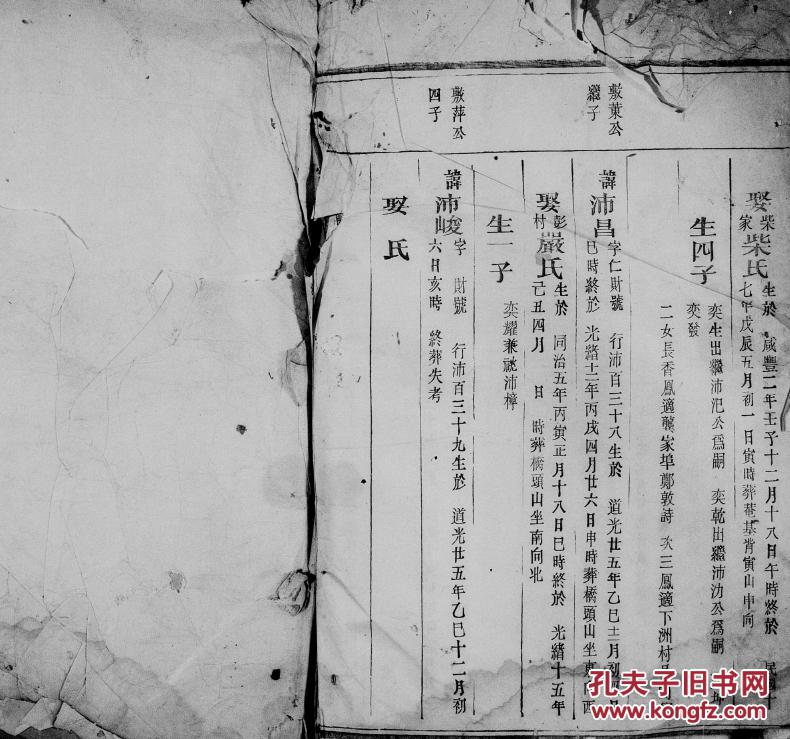 娶
柴家
柴氏
生於 咸豐二年壬子十二月十八日午時終於 民國十
七年戊辰五月初一日寅時葬菴基背寅山申向
生四子
奕生出繼沛汜公爲嗣 奕乾出繼沛沩公爲嗣
奕發
二女長香鳳適龔家埠鄭敦詩 次三鳳適下洲村
敷菓公
繼子
諱沛昌
字仁財號 行沛百三十八生於 道光廿五年乙巳十二月初
巳時終於 光緒十二年丙戌四月廿六日申時葬橋頭山坐東向西
娶
彭村
嚴氏
生於 同治五年丙寅正月十八日巳時終於 光緒十五年
己丑四月 日 時葬橋頭山坐南向北
生一子
奕耀兼祧沛樟
敷萍公
四子
諱沛峻
字 財號 行沛百三十九生於 道光廿五年乙巳十二月初
六日亥時 終葬失考
娶 氏
孔夫子旧书网
www.kongfz.com